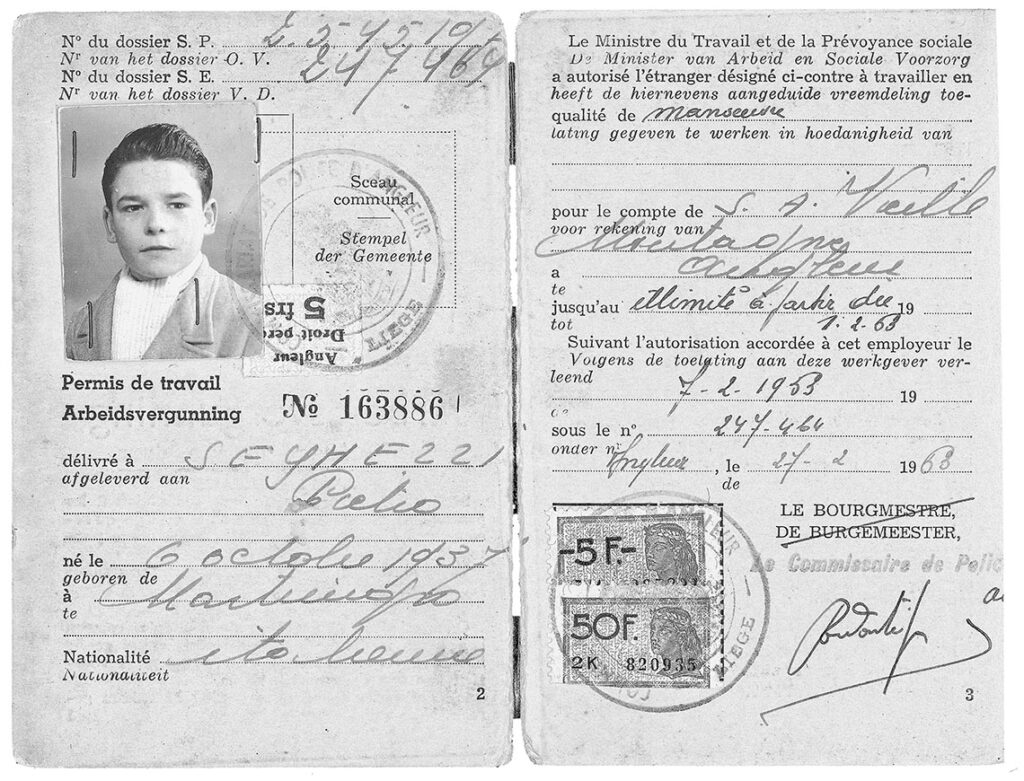 N° du dossier S. P. 2.545.19
Nr van het dossier O. V.
N° du dossier S. E. 247464
Nr van het dossier V. D.
Sceau
communal
Stempel
der Gemeente
POLICE D'ANGLEUR
LIEGE
5 frs
Droit
Angleur
Permis de travail
Arbeidsvergunning
No 163886
délivré à SEGHEZZI
afgeleverd aan Pietro
né le 6 octobre 1937
geboren de
à
te
Nationalité italienne
Nationaliteit
2
Le Ministre du Travail et de la Prévoyance sociale
De Minister van Arbeid en Sociale Voorzorg
a autorisé l'étranger désigné ci-contre à travailler en
heeft de hiernevens aangeduide vreemdeling toe-
qualité de manoeuvre
lating gegeven te werken in hoedanigheid van
pour le compte de S. A. Vieille
voor rekening van Montagne
a Angleur
te
jusqu'au illimité à partir du 19
tot 1.2-63
Suivant l'autorisation accordée à cet employeur le
Volgens de toelating aan deze werkgever ver-
leend 7-2-1963 19
sous le n° 247-464
onder nr
Angleur, le 27-2 1963
de
LE BOURGMESTRE,
DE BURGEMEESTER,
Le Commissaire de Police
-5 F.-
50F.
2K 820935
ANGLEUR
LIEGE
3